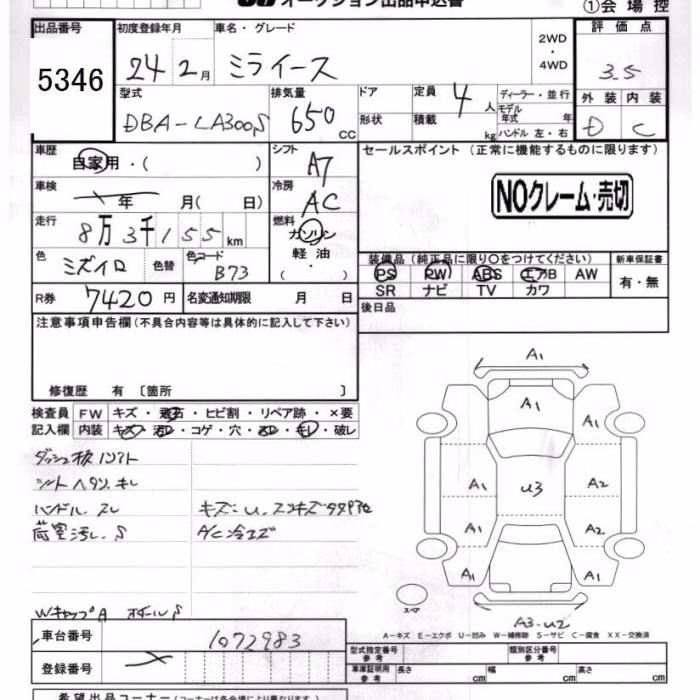 オークション出品申込書
①会場控
出品番号 初度登録年月 車名・グレード 評価点
5346 24 2月 ミライース 2WD・4WD 3.5
型式 排気量 ドア 定員 ディーラー・並行 外装 内装
DBA-LA300S 650cc 4人 モデル年式 年 D C
形状 積載 kg ハンドル 左・右
車歴 自家用・( ) シフト A7 セールスポイント (正常に機能するものに限ります)
車検 年 月( 日) 冷房 AC NOクレーム・売切
走行 8万3千155km 燃料 ガソリン
軽油
・( )
色 ミズイロ 色替 色コード B73
装備品 (純正品に限り○をつけてください) 新車保証書
PS PW ABS エアB AW 有・無
SR ナビ TV カワ
R券 7420円 名変通知期限 月 日 後日品
注意事項申告欄 (不具合内容等は具体的に記入して下さい)
修復歴 有 〔箇所 〕
検査員 FW キズ・飛石・ヒビ割・リペア跡・×要
記入欄 内装 キズ・汚れ・コゲ・穴・スレ・キレ・破レ
シートヘタリ、キレ
ハンドル スレ
荷室汚レ、S
A/C冷エズ
WキャップA
A1
A1
A1 A1
A1 U3 A2
A1 A2
A1 A1
スペア
A3-U2
A-キズ E-エクボ U-凹み W-補修跡 S-サビ C-腐食 XX-交換済
車台番号 1072983
登録番号
型式指定番号 参考 類別区分番号 参考
車庫証明用 参考 長さ cm 幅 cm 高さ cm
希望出品コーナー (コーナーは各会場により異なります)